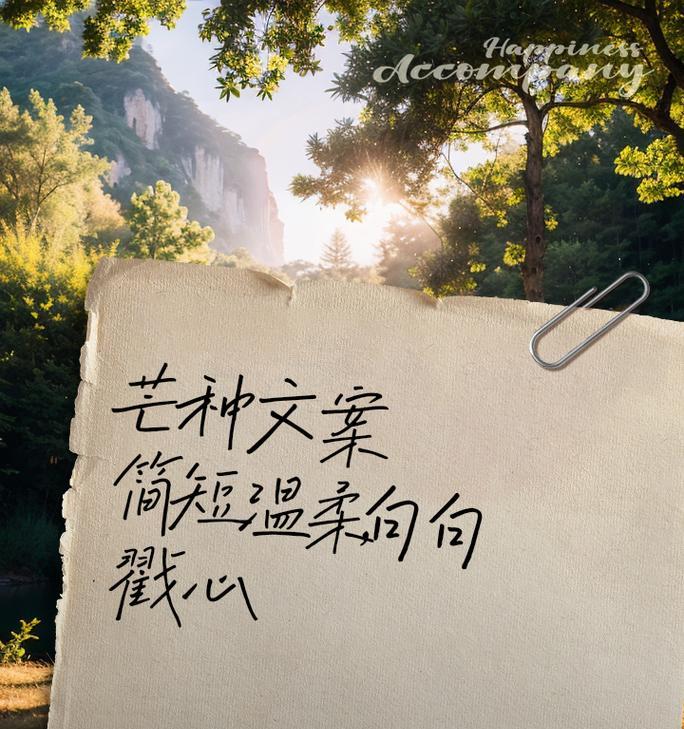 Happiness
Accompany
芒种文案
简短温柔句句
戳心